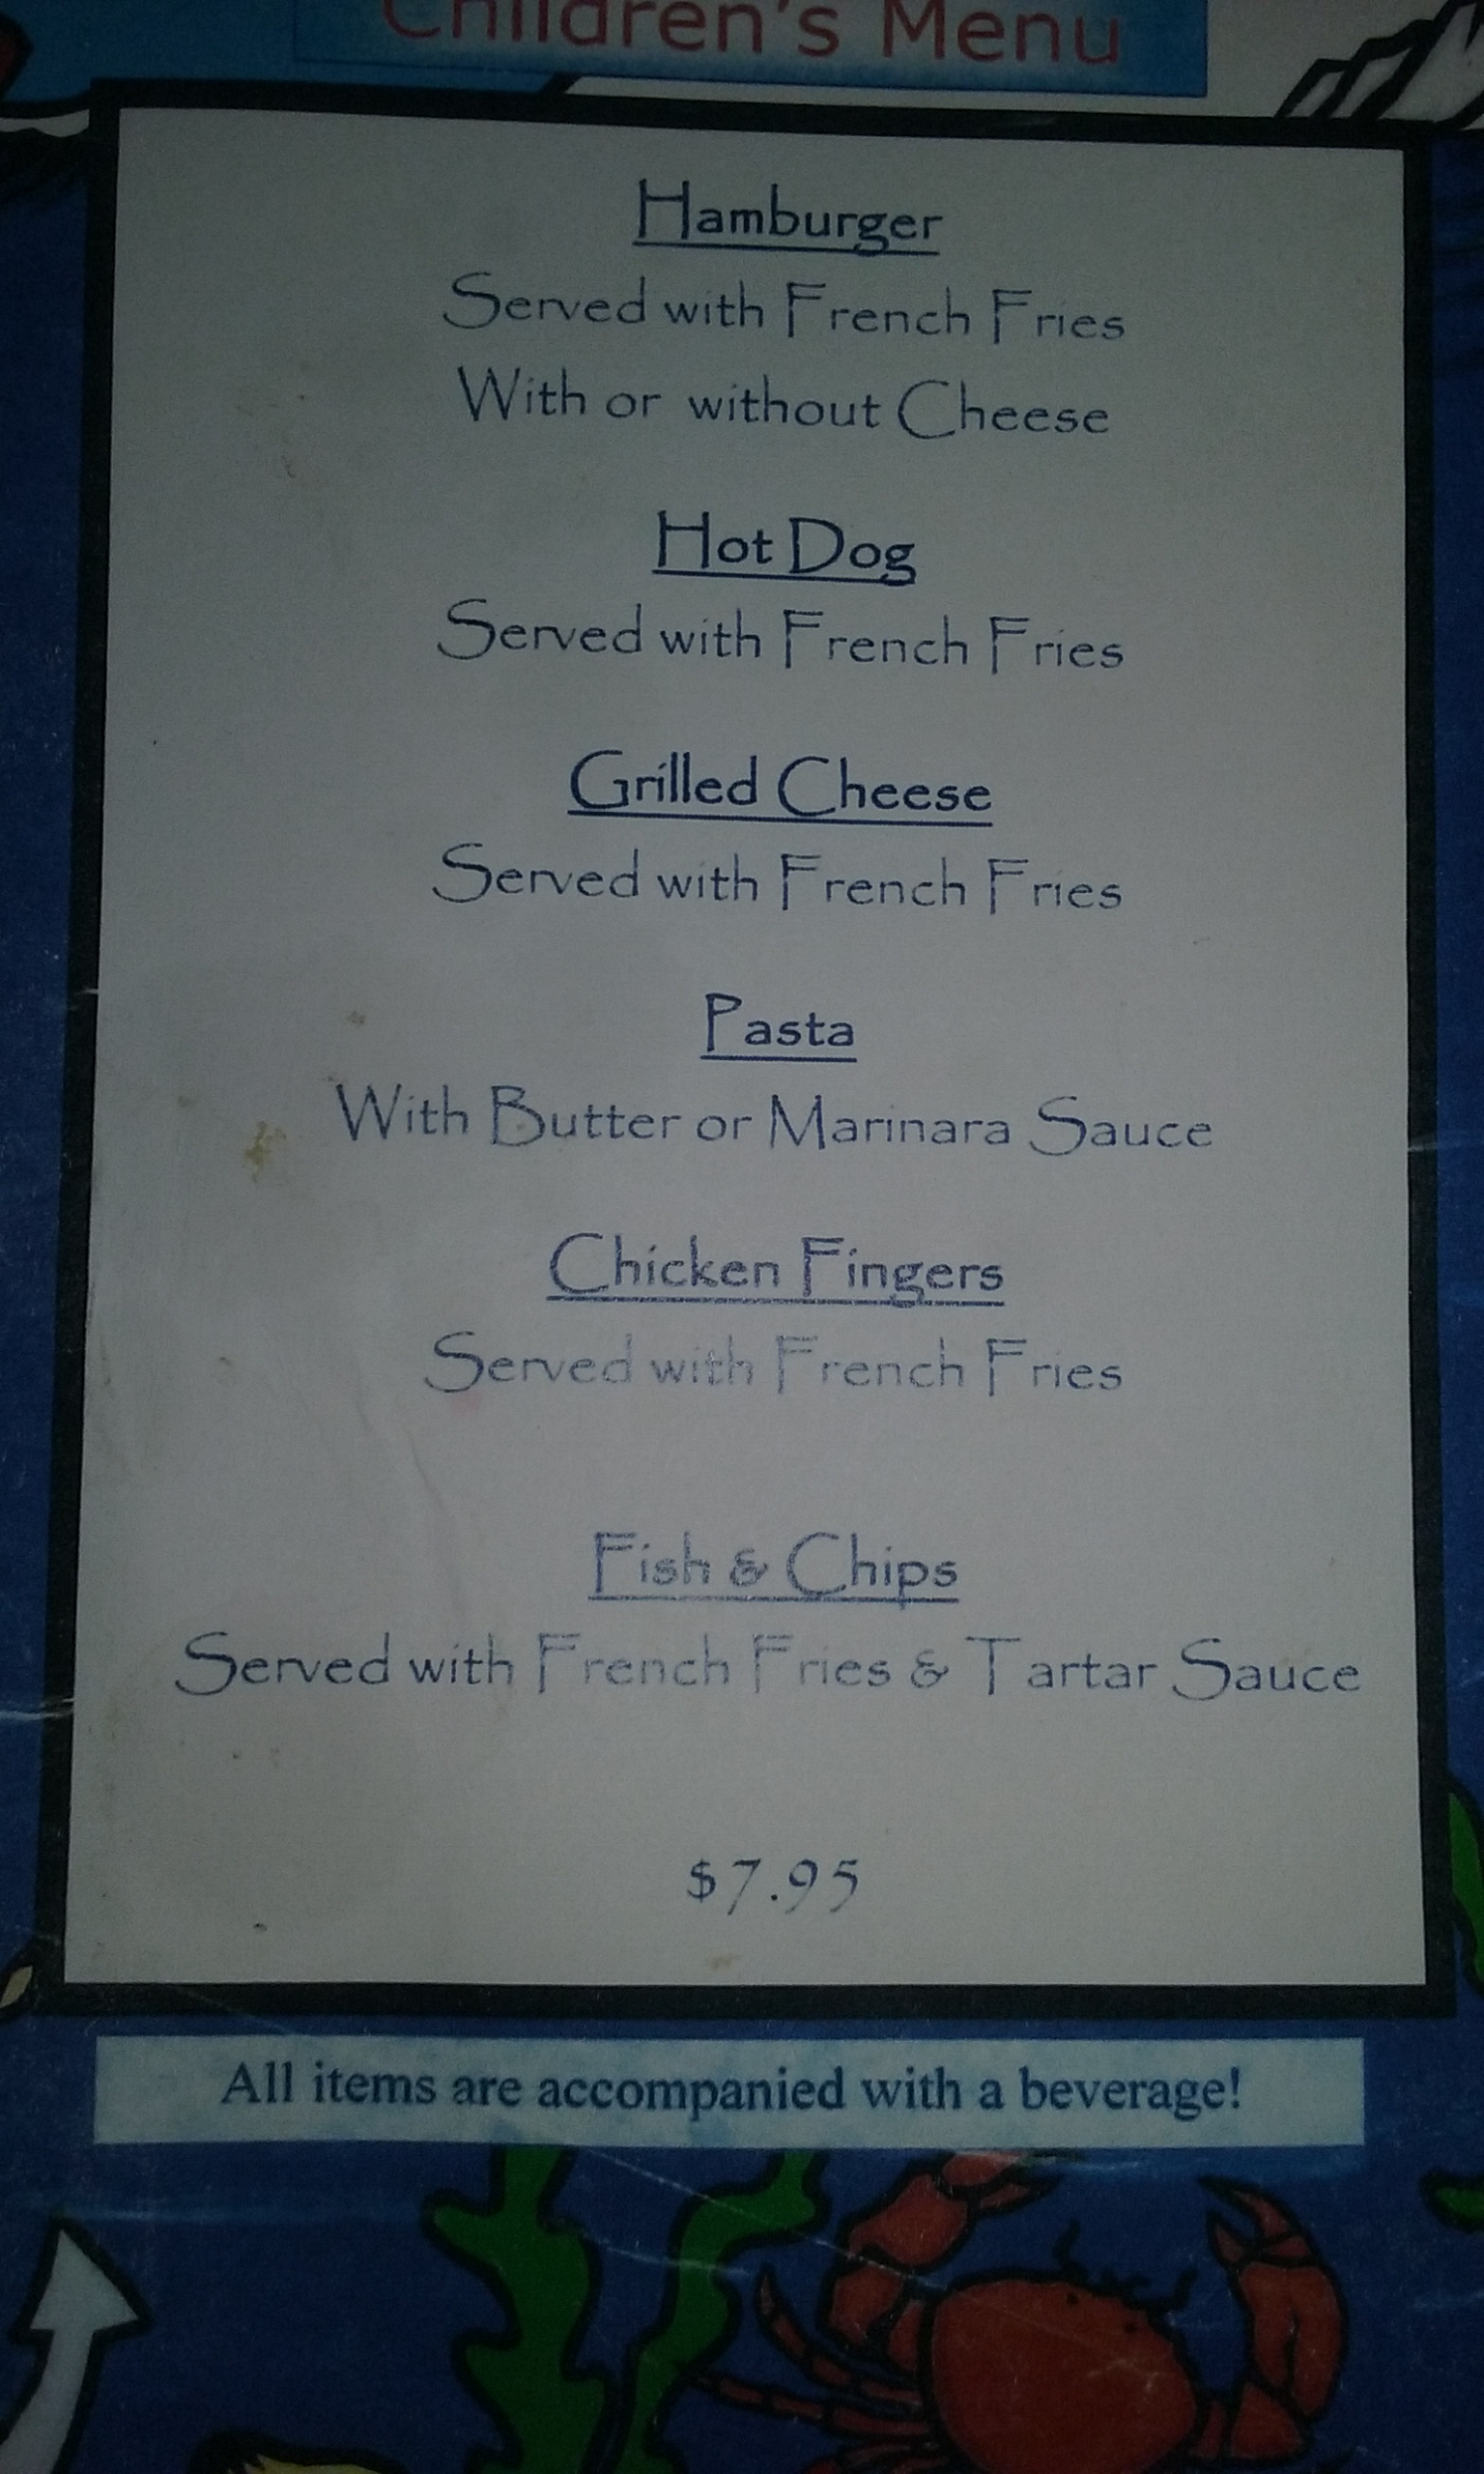 Children's Menu
Hamburger
Served with French Fries
With or without Cheese
Hot Dog
Served with French Fries
Grilled Cheese
Served with French Fries
Pasta
With Butter or Marinara Sauce
Chicken Fingers
Served with French Fries
Fish & Chips
Served with French Fries & Tartar Sauce
$7.95
All items are accompanied with a beverage!